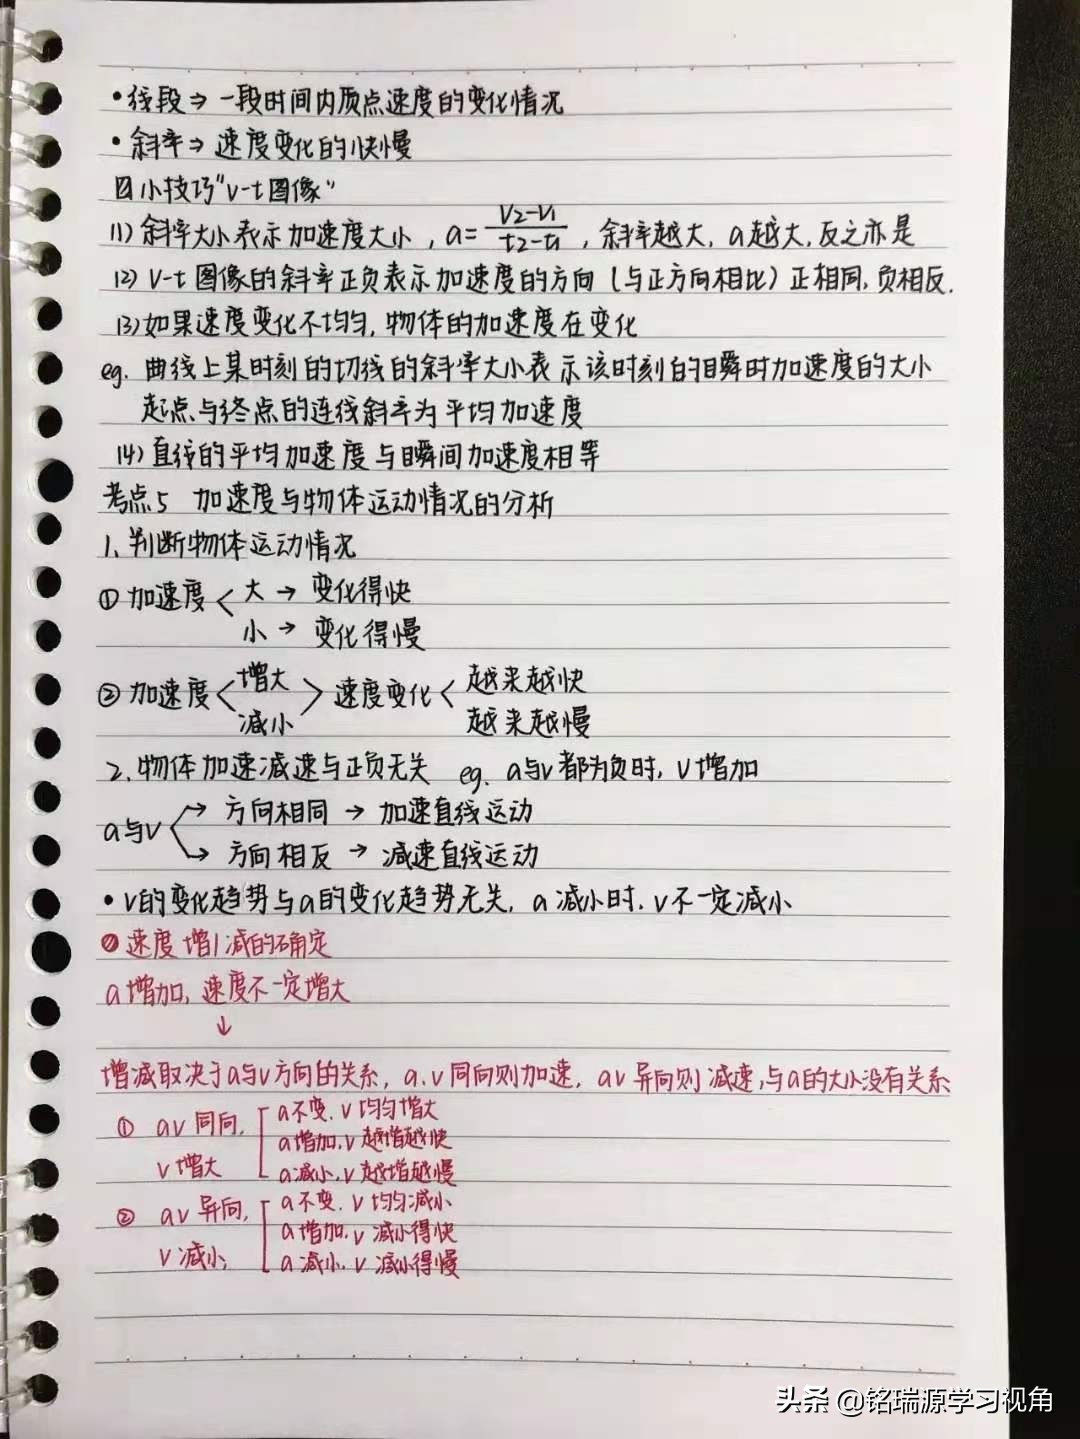 •线段⇒一段时间内质点速度的变化情况
•斜率⇒速度变化的快慢
四小技巧“v-t图像”
(1)斜率大小表示加速度大小，a=\frac{V2-V1}{t2-t1}，斜率越大，a越大，反之亦是
(2)V-t图像的斜率正负表示加速度的方向(与正方向相比)正相同，负相反.
(3)如果速度变化不均匀，物体的加速度在变化
eg. 曲线上某时刻的切线的斜率大小表示该时刻的瞬时加速度的大小
起点与终点的连线斜率为平均加速度
(4)直线的平均加速度与瞬间加速度相等
考点5 加速度与物体运动情况的分析
1、判断物体运动情况
①加速度<大→变化得快
小→变化得慢
②加速度<增大 减小>速度变化<越来越快
越来越慢
2、物体加速减速与正负无关 eg. a与v都为负时，V增加
a与v→方向相同→加速直线运动
→方向相反→减速直线运动
•v的变化趋势与a的变化趋势无关，a减小时，v不一定减小
速度增减的确定
a增加，速度不一定增大
↓
增减取决于a与v方向的关系，a、v同向则加速，av异向则减速，与a的大小没有关系
①av同向，v增大
a不变，v均匀增大
a增加，v越增越快
a减小，v越增越慢
②av异向，v减小，
a不变，v均匀减小
a增加，v减小得快
a减小，v减小得慢
头条@铭瑞源学习视角